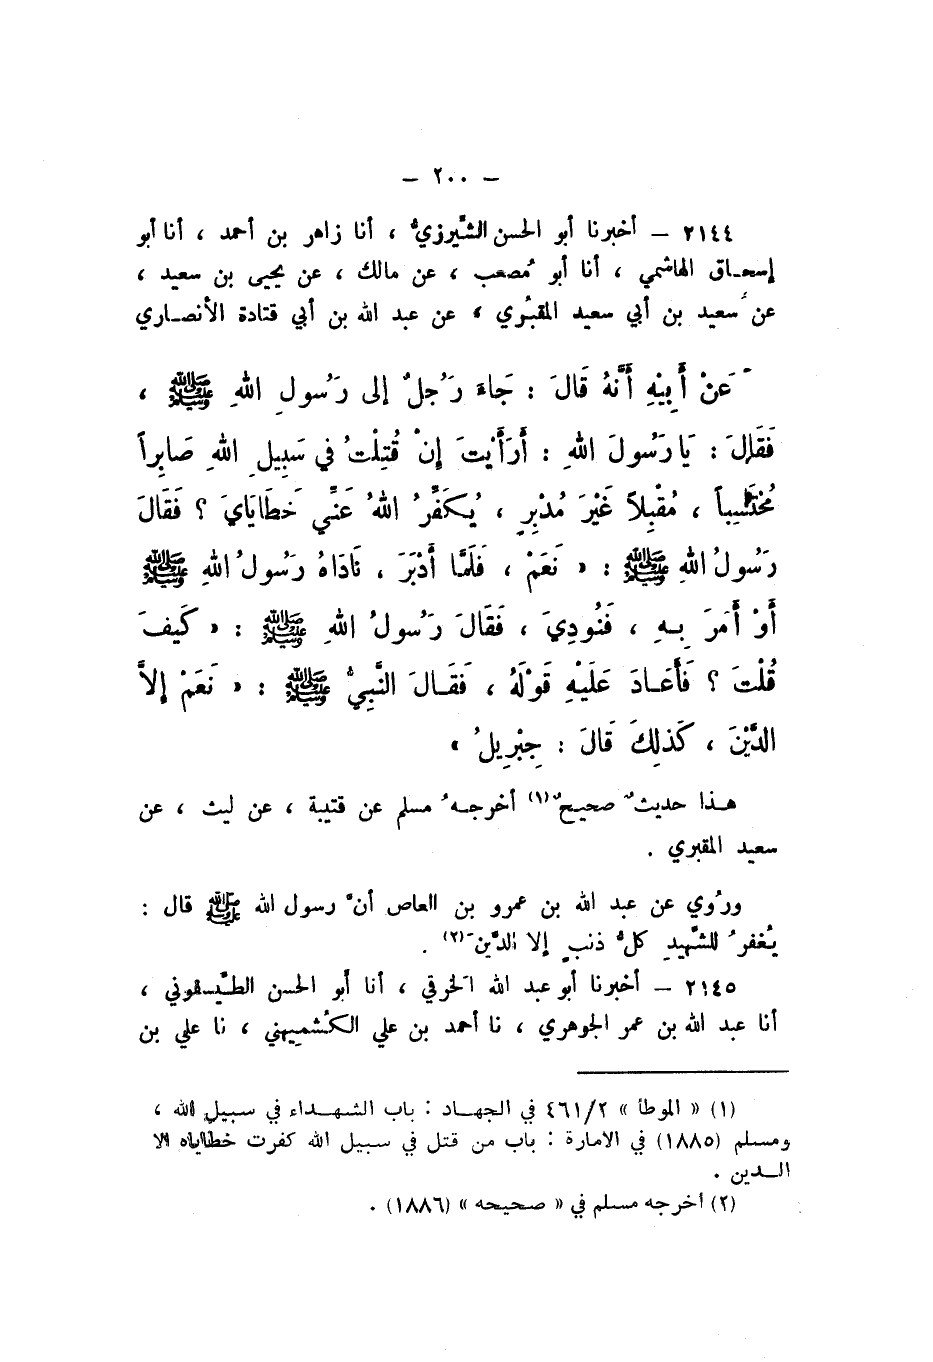 – ٢٠٠ –
٢١٤٤ – أخبرنا أبو الحسن الشَّيرزيُّ ، أنا زاهر بن أحمد ، أنا أبو
إسحاق الهاشمي ، أنا أبو مُصعب ، عن مالك ، عن يحيى بن سعيد ،
عن سعيد بن أبي سعيد المقبُري ، عن عبد الله بن أبي قتادة الأنصاري
عَنْ أَبِيْهِ أَنَّهُ قَالَ : جَاءَ رَجُلٌ إلى رَسُولِ اللهِ ﷺ ،
فَقَالَ : يَا رَسُولَ اللهِ : أَرَأَيْتَ إنْ قُتِلْتُ في سَبِيلِ اللهِ صَابِراً
مُحْتَسِباً ، مُقْبِلاً غَيْرَ مُدْبِرٍ ، يُكَفِّرُ اللهُ عَنِّي خَطَايَايَ ؟ فَقَالَ
رَسُولُ اللهِ ﷺ : « نَعَمْ ، فَلَمَّا أَدْبَرَ ، نَادَاهُ رَسُولُ اللهِ ﷺ
أَوْ أَمَرَ بِهِ ، فَنُودِيَ ، فَقَالَ رَسُولُ اللهِ ﷺ : « كَيفَ
قُلْتَ ؟ فَأَعَادَ عَلَيْهِ قَوْلَهُ ، فَقَالَ النَّبِيُّ ﷺ : « نَعَمْ إلاَّ
الدَّيْنَ ، كَذلِكَ قَالَ : جِبْرِيلُ »
هذا حديثٌ صحيحٌ (١) أخرجهُ مسلم عن قتيبة ، عن ليث ، عن
سعيد المقبري .
ورُوي عن عبد الله بن عمرو بن العاص أنَّ رسول الله ﷺ قال :
يُغفرُ للشَّهيدِ كلُّ ذنبٍ إلا الدَّينَ (٢) .
٢١٤٥ – أخبرنا أبو عبد الله الخرقي ، أنا أبو الحسن الطَّيسفوني ،
أنا عبد الله بن عمر الجوهري ، نا أحمد بن علي الكُشميهني ، نا علي بن
(١) « الموطأ » ٤٦١/٢ في الجهاد : باب الشهداء في سبيل الله ،
ومسلم (١٨٨٥) في الامارة : باب من قتل في سبيل الله كفرت خطاياه الا
الدين .
(٢) أخرجه مسلم في « صحيحه » (١٨٨٦) .